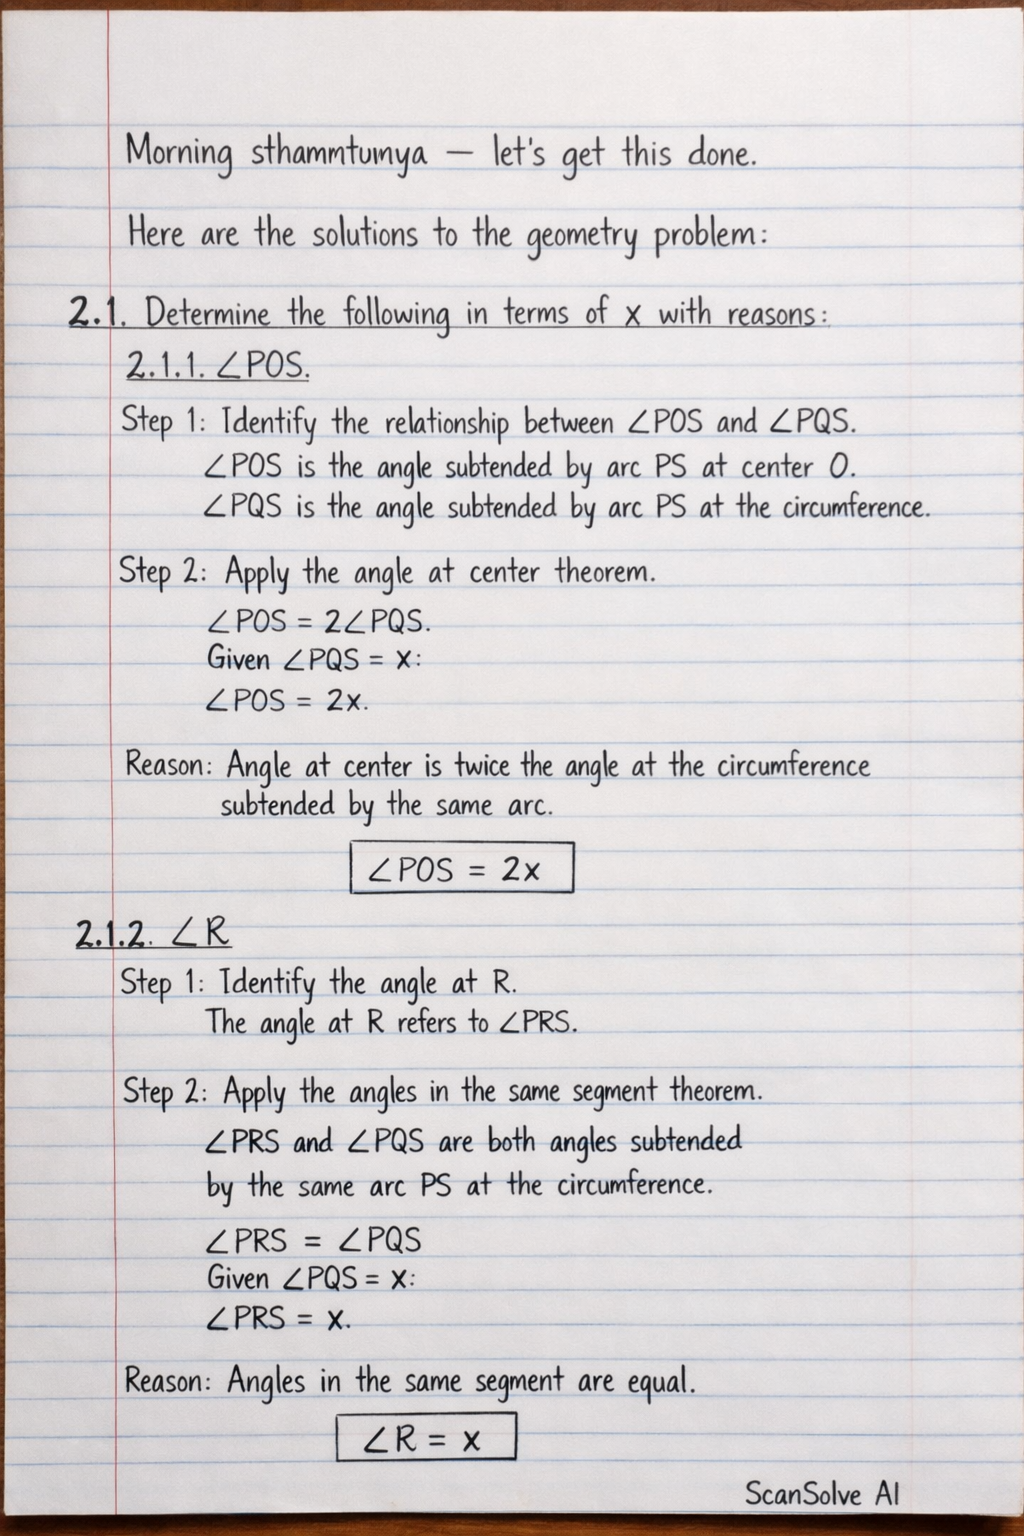 Morning sthammtumya — let's get this done.
Here are the solutions to the geometry problem:
2.1. Determine the following in terms of x with reasons:
2.1.1. ∠POS.
Step 1: Identify the relationship between ∠POS and ∠PQS.
∠POS is the angle subtended by arc PS at center O.
∠PQS is the angle subtended by arc PS at the circumference.
Step 2: Apply the angle at center theorem.
∠POS = 2∠PQS.
Given ∠PQS = x:
∠POS = 2x.
Reason: Angle at center is twice the angle at the circumference
subtended by the same arc.
∠POS = 2x
2.1.2. ∠R
Step 1: Identify the angle at R.
The angle at R refers to ∠PRS.
Step 2: Apply the angles in the same segment theorem.
∠PRS and ∠PQS are both angles subtended
by the same arc PS at the circumference.
∠PRS = ∠PQS
Given ∠PQS = x:
∠PRS = x.
Reason: Angles in the same segment are equal.
∠R = x
ScanSolve AI